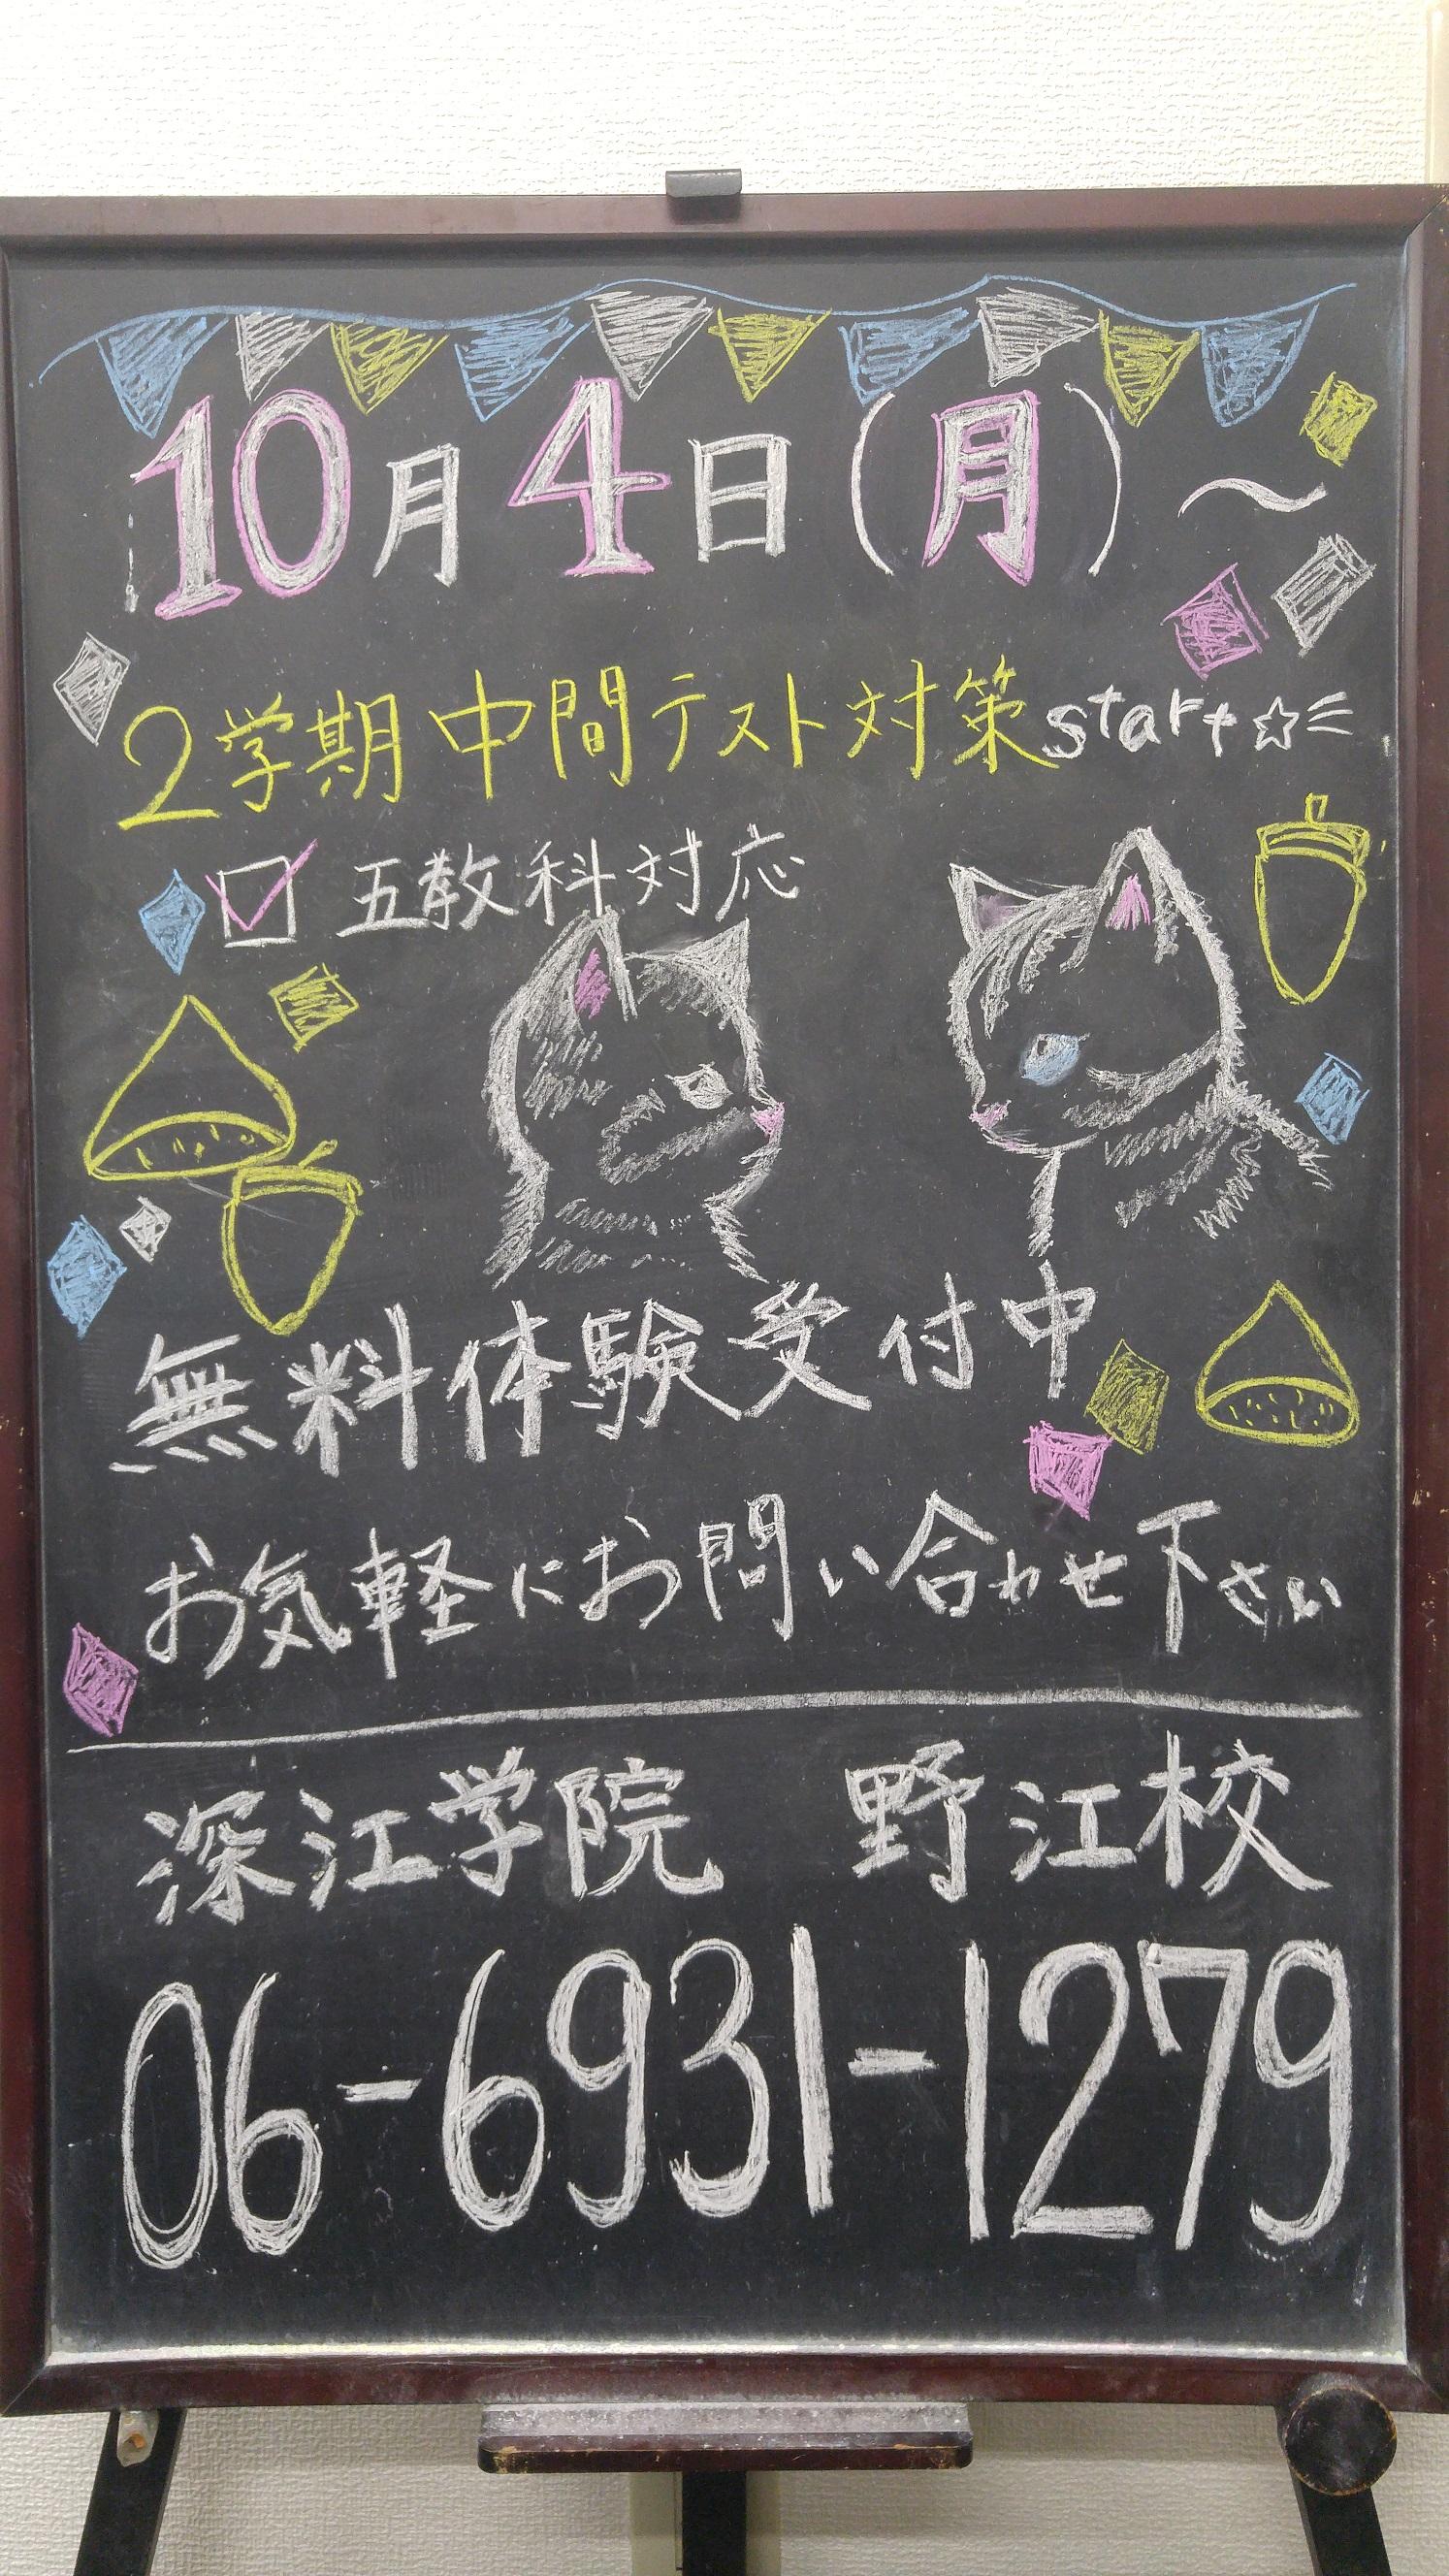 10月4日(月)～
2学期中間テスト対策start☆
五教科対応
無料体験受付中
お気軽にお問い合わせ下さい
深江学院 野江校
06-6931-1279